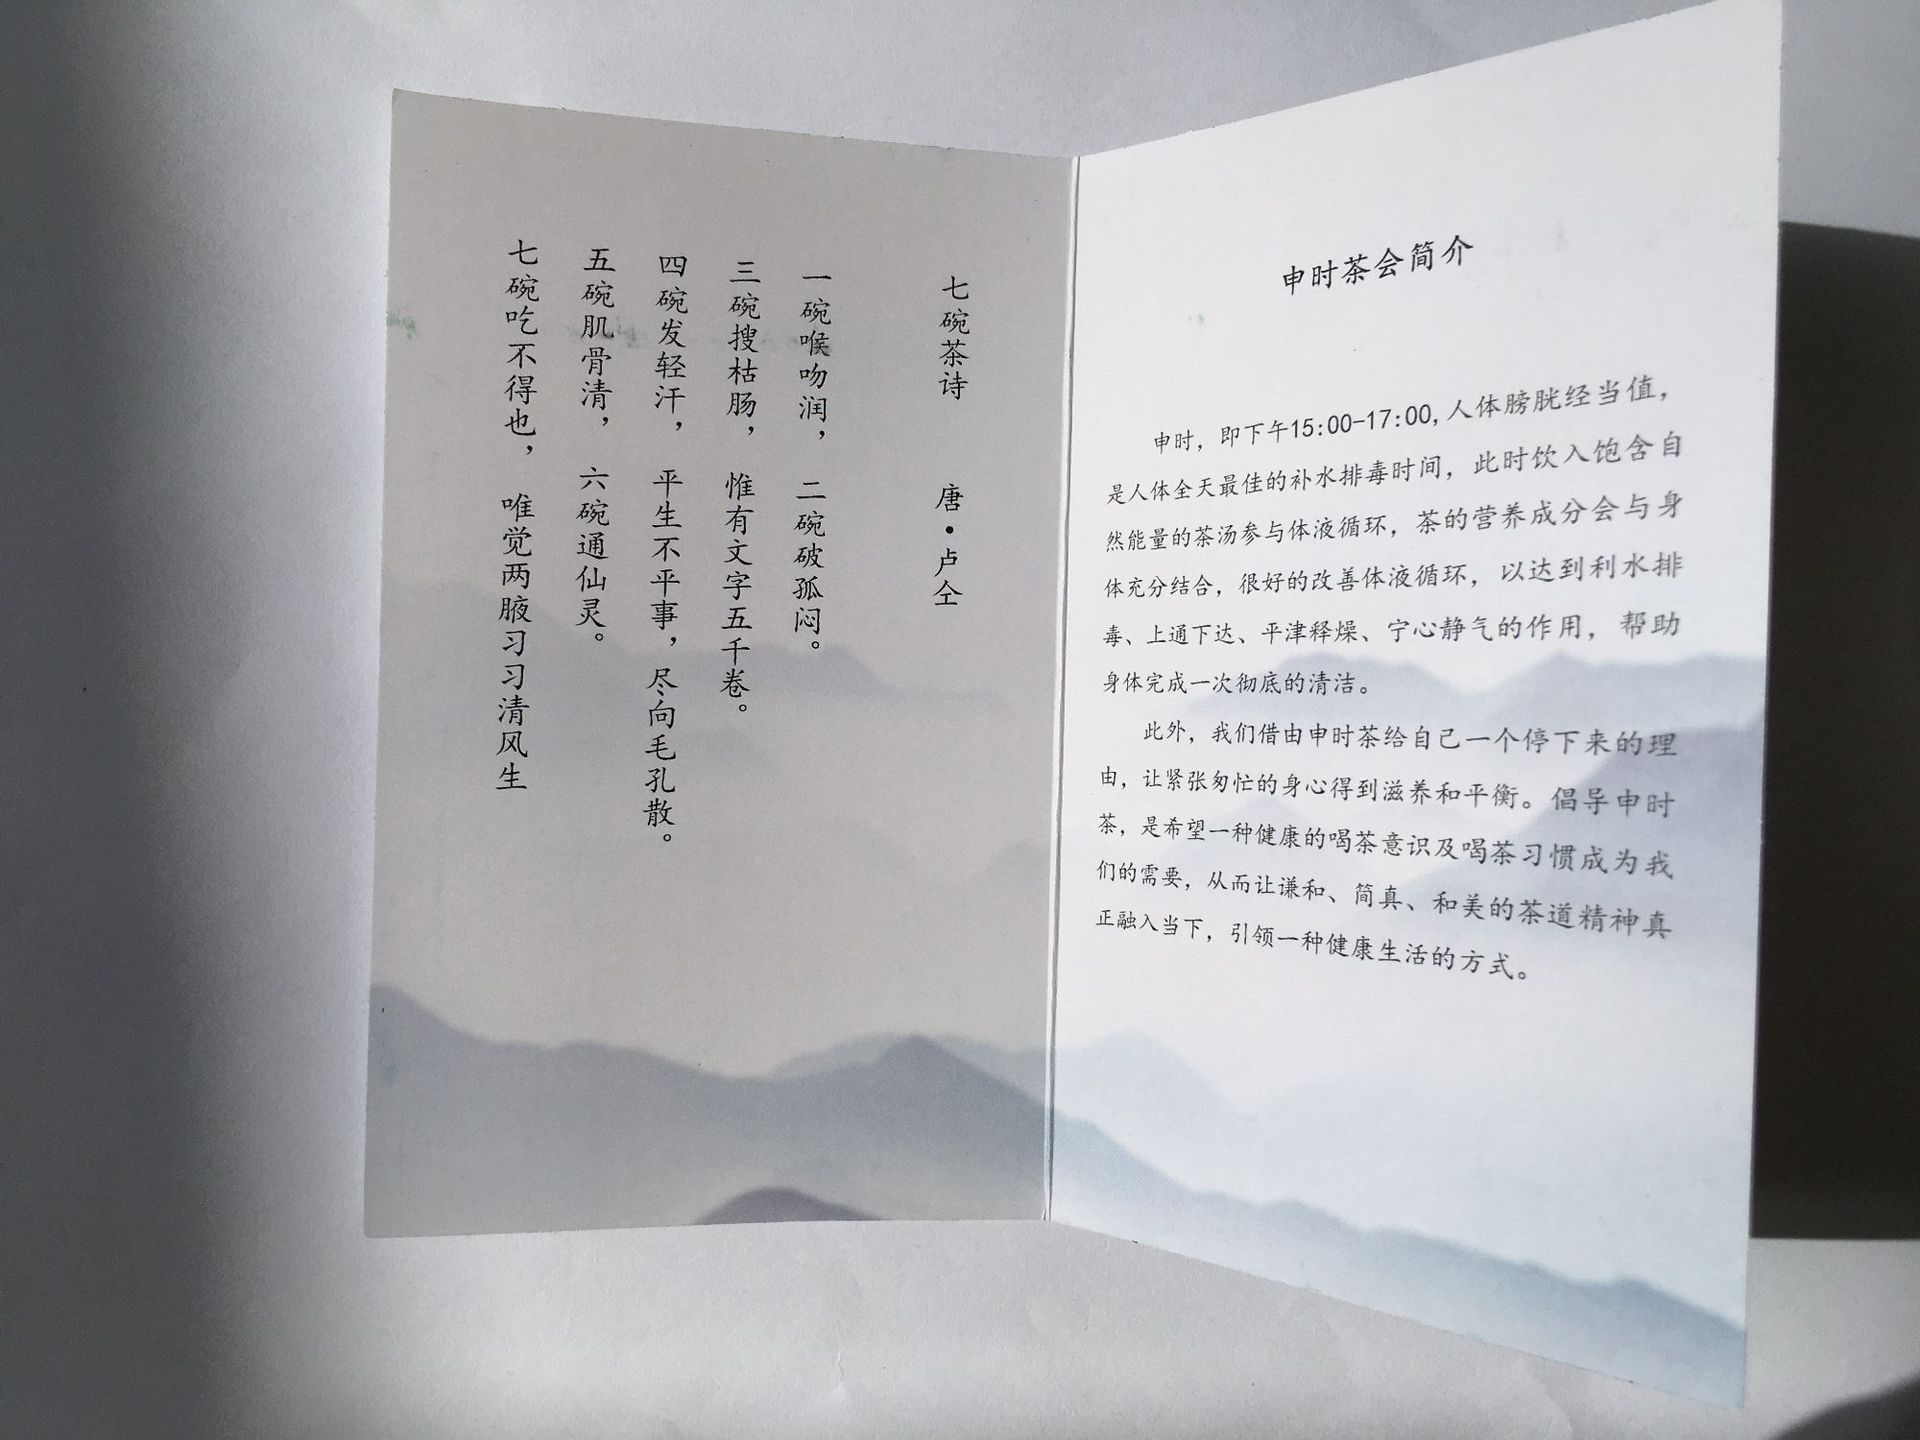 七碗茶诗 唐·卢仝
一碗喉吻润， 二碗破孤闷。
三碗搜枯肠， 惟有文字五千卷。
四碗发轻汗， 平生不平事，尽向毛孔散。
五碗肌骨清， 六碗通仙灵。
七碗吃不得也， 唯觉两腋习习清风生
申时茶会简介
申时，即下午15:00-17:00,人体膀胱经当值，
是人体全天最佳的补水排毒时间，此时饮入饱含自
然能量的茶汤参与体液循环，茶的营养成分会与身
体充分结合，很好的改善体液循环，以达到利水排
毒、上通下达、平津释燥、宁心静气的作用，帮助
身体完成一次彻底的清洁。
此外，我们借由申时茶给自己一个停下来的理
由，让紧张匆忙的身心得到滋养和平衡。倡导申时
茶，是希望一种健康的喝茶意识及喝茶习惯成为我
们的需要，从而让谦和、简真、和美的茶道精神真
正融入当下，引领一种健康生活的方式。